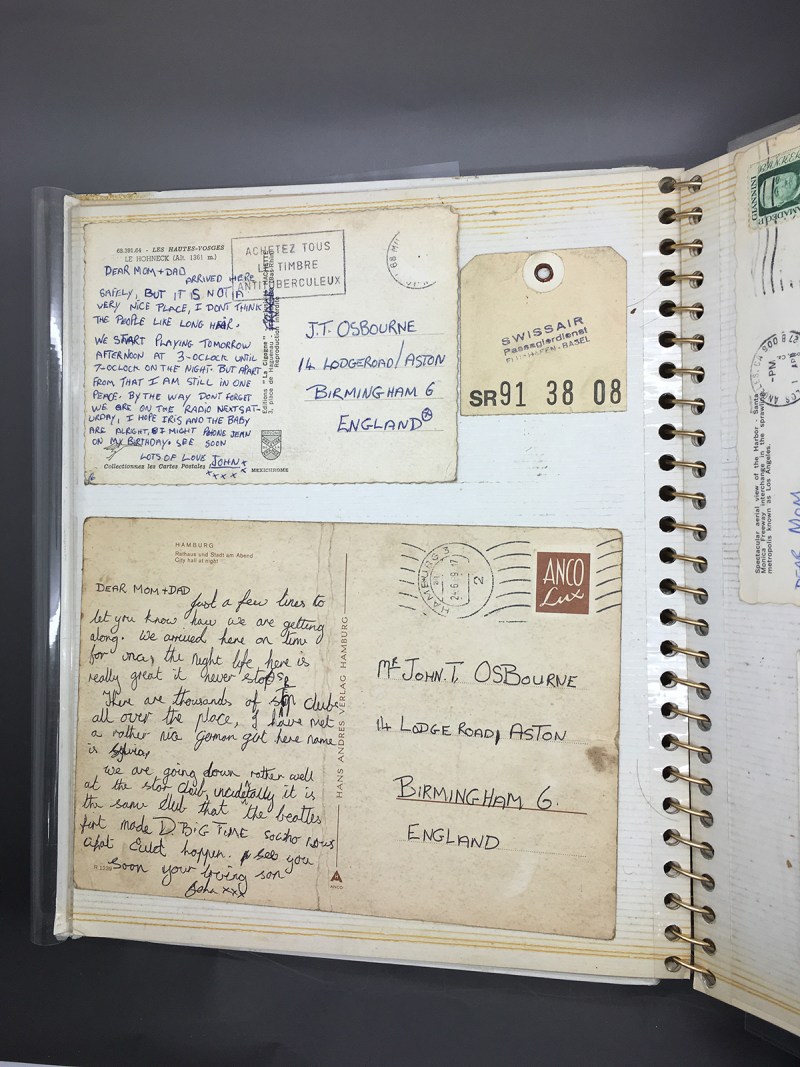 68.391.04 - LES HAUTES-VOSGES
LE HOHNECK (Alt. 1361 m.)
ACHETEZ TOUS
TIMBRE
ANTITUBERCULEUX
DEAR MOM + DAD
ARRIVED HERE
SAFELY, BUT IT IS NOT A
VERY NICE PLACE, I DONT THINK
THE PEOPLE LIKE LONG HAIR.
WE START PLAYING TOMORROW
AFTERNOON AT 3-OCLOCK UNTIL
7-OCLOCK ON THE NIGHT. BUT APART
FROM THAT I AM STILL IN ONE
PEACE. BY THE WAY DONT FORGET
WE ARE ON THE RADIO NEXT SAT-
URDAY, I HOPE IRIS AND THE BABY
ARE ALRIGHT, I MIGHT PHONE JEAN
ON MY BIRTHDAY. SEE SOON
LOTS OF LOVE JOHN x
x x x
Collectionnez les Cartes Postales
MEXICHROME
Editions "La Cigogne"
3, place de Haguenau
Reproduction interdite
HACHETTE
J.T. OSBOURNE
14 LODGEROAD/ASTON
BIRMINGHAM 6
ENGLAND
SWISSAIR
Passagierdienst
BASEL
SR91 38 08
HAMBURG
Rathaus und Stadt am Abend
City hall at night
DEAR MOM + DAD
Just a few lines to
let you know how we are getting
along. We arrived here on time
for once, the night life here is
really great it never stops
There are thousands of clubs
all over the place, I have met
a rather nice German girl here name
is Sylvia,
We are going down rather well
at the star club, it is
the same club that the beatles
first made D BIG TIME so who nows
what could happen. see you
soon your loving son
John xxx
HANS ANDRES VERLAG HAMBURG
ANCO
HAMBURG
2
ANCO
Lux
MR JOHN. T. OSBOURNE
14 LODGE ROAD, ASTON
BIRMINGHAM 6.
ENGLAND
-PM
Spectacular aerial view of the Harbor - Santa
Monica Freeway interchange in the sprawling
metropolis known as Los Angeles.
DEAR MOM